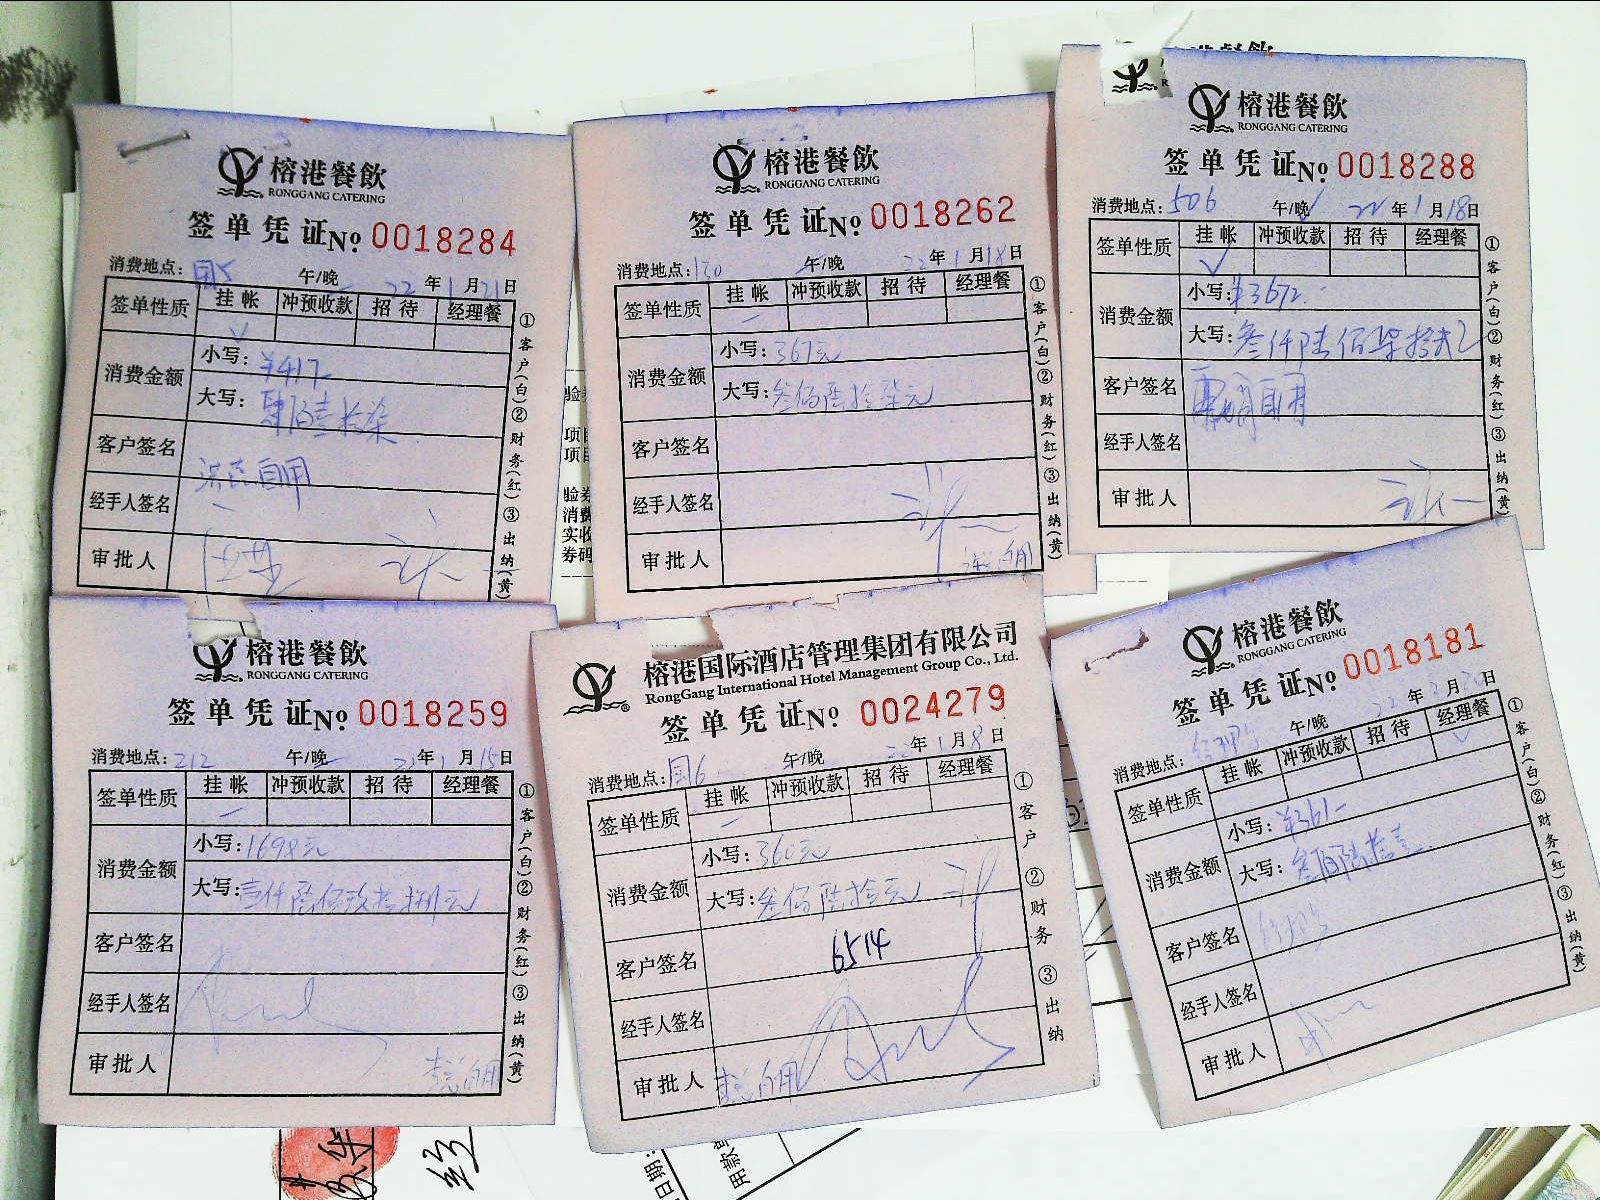 榕港餐飲
RONGGANG CATERING
签单凭证No 0018284
消费地点: 国5 午/晚 22年1月21日
签单性质 挂帐 冲预收款 招待 经理餐
消费金额
小写: ¥417
大写: 肆佰壹拾柒
客户签名
经手人签名
审批人
①客户(白)②财务(红)③出纳(黄)
榕港餐飲
RONGGANG CATERING
签单凭证No 0018262
消费地点: 130 午/晚 22年1月18日
签单性质 挂帐 冲预收款 招待 经理餐
消费金额
小写: 367元
大写: 叁佰陆拾柒元
客户签名
经手人签名
审批人
①客户(白)②财务(红)③出纳(黄)
榕港餐飲
RONGGANG CATERING
签单凭证No 0018288
消费地点: 506 午/晚 22年1月18日
签单性质 挂帐 冲预收款 招待 经理餐
消费金额
小写: ¥3672
大写: 叁仟陆佰柒拾贰
客户签名
经手人签名
审批人
①客户(白)②财务(红)③出纳(黄)
榕港餐飲
RONGGANG CATERING
签单凭证No 0018259
消费地点: 212 午/晚 22年1月15日
签单性质 挂帐 冲预收款 招待 经理餐
消费金额
小写: 1698元
大写: 壹仟陆佰玖拾捌元
客户签名
经手人签名
审批人
①客户(白)②财务(红)③出纳(黄)
榕港国际酒店管理集团有限公司
RongGang International Hotel Management Group Co., Ltd.
签单凭证No 0024279
消费地点: 国6 午/晚 22年1月8日
签单性质 挂帐 冲预收款 招待 经理餐
消费金额
小写: 360元
大写: 叁佰陆拾元
客户签名 6514
经手人签名
审批人
①客户 ②财务 ③出纳
榕港餐飲
RONGGANG CATERING
签单凭证No 0018181
消费地点: 午/晚 22年 月 日
签单性质 挂帐 冲预收款 招待 经理餐
消费金额
小写: ¥361-
大写: 叁佰陆拾壹
客户签名
经手人签名
审批人
①客户(白)②财务(红)③出纳(黄)